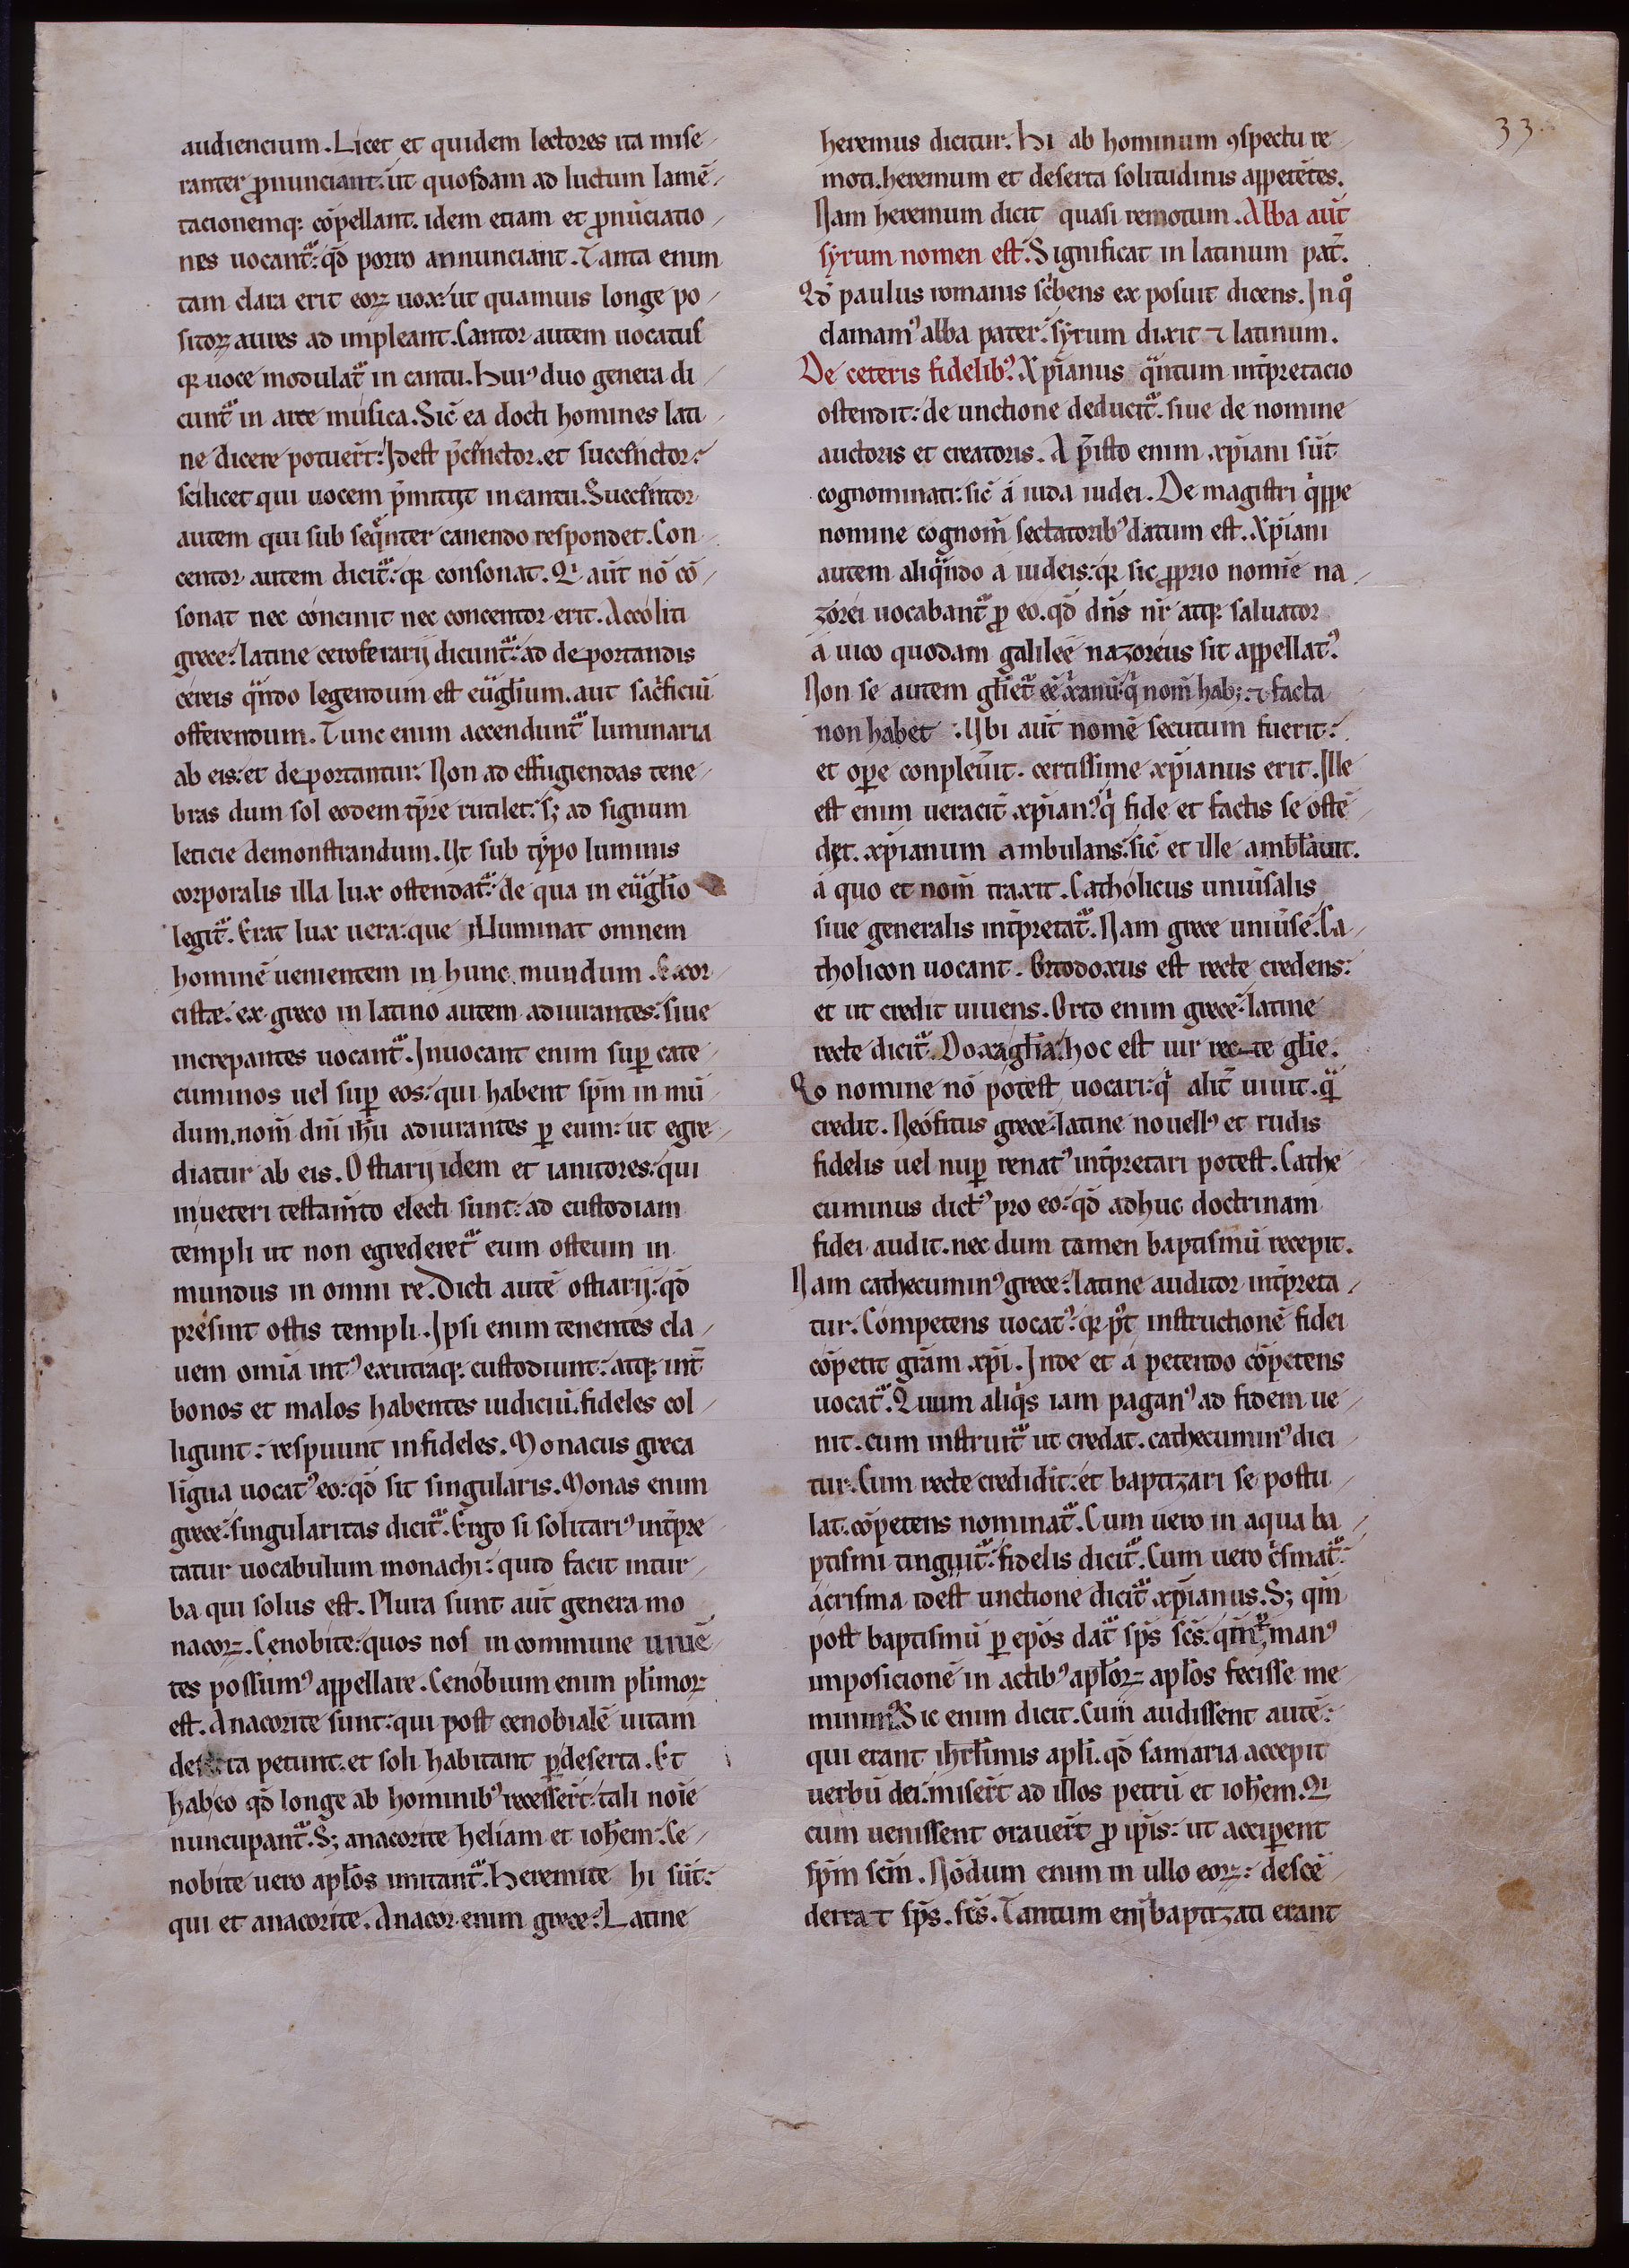 33.
audiencium. Licet et quidem lectores ita mise
ranter ꝓnunciant. ut quosdam ad luctum lamē
tacionemq; cōpellant. idem etiam et ꝓnūciatio
nes uocant᷑. qđ porro annunciant. Tanta enim
tam clara erit eoꝝ uox. ut quamuis longe po
sitoꝝ aures ad impleant. Cantor autem uocatus
qꝛ uoce modulat᷑ in cantu. Huiꝰ duo genera di
cunt᷑ in arte musica. Sic̄ ea docti homines lati
ne dicere potuer̄t. Idest p̄centor. et succentor.
scilicet qui uocem p̄mittit in cantu. Succentor
autem qui sub seqͣnter canendo respondet. Con
centor autem dicit᷑. qꝛ consonat. Qi aūt nō cō
sonat nec concinit nec concentor erit. Accoliti
grece. latine ceroferarij dicunt᷑. ad deportandis
cereis qͣndo legendum est euḡlium. aut sac̄ficiū
offerendum. Tunc enim accendunt᷑ luminaria
ab eis. et deportantur. Non ad effugiendas tene
bras dum sol eodem tp̄re rutilet. s; ad signum
leticie demonstrandum. Ut sub tẏpo luminis
corporalis illa lux ostendat᷑. de qua in euḡlio
legit᷑. Erat lux uera. que illuminat omnem
hominē uenientem in hunc mundum. Exor
cistæ. ex greco in latino autem adiurantes. siue
increpantes uocant᷑. Inuocant enim suꝑ cate
cuminos uel suꝑ eos. qui habent sp̄m in mū
dum. nom̄ dn̄i ih̄u adiurantes ꝑ eum. ut egre
diatur ab eis. Ostiarij idem et ianitores. qui
in ueteri testam̄to electi sunt. ad custodiam
templi ut non egrederet᷑ eum osteum in
mundus in omni re. Dicti autē ostiarij. qđ
presint ostis templi. Ipsi enim tenentes cla
uem omia intꝰ exutraq; custodiunt. atq; int̄
bonos et malos habentes iudiciū. fideles col
ligunt. respuunt infideles. Monacus greca
ligua uocatꝰ eo. qđ sit singularis. Monas enim
grece. singularitas dicit᷑. Ergo si solitariꝰ int̄pre
tatur uocabulum monachi. quid facit intur
ba qui solus est. Plura sunt aūt genera mo
nacoꝝ. Cenobite. quos nos in commune uiuē
tes possumꝰ appellare. Cenobium enim pl̄imoꝝ
est. Anacorite sunt. qui post cenobialē uitam
deserta petunt. et soli habitant ꝑ deserta. Et
habeo qđ longe ab hominibꝰ recesser̄t. tali noīe
nuncupant᷑. S; anacorite heliam et ioh̄em. Ce
nobite uero apl̄os imitant᷑. Heremite hi sūt.
qui et anacorite. Anacor enim grece. Latine
heremus dicitur. Hi ab hominum ꝯspectu re
moti. heremum et deserta solitudinis appetētes.
Nam heremum dicit quasi remotum. Abba aūt
sẏrum nomen est. Significat in latinum pat̄.
Qđ paulus romanis sc̄bens ex posuit dicens. In qͦ
clamamꝰ abba pater. sẏrum dixit ⁊ latinum.
De ceteris fidelibꝰ. Xp̄ianus qͣntum int̄pretacio
ostendit. de unctione deducit᷑. siue de nomine
auctoris et creatoris. A p̄isto enim xp̄iani sūt
cognominati. sic̄ a iuda iudei. De magistri qͥppe
nomine cognom̄ sectatoribꝰ datum est. Xp̄iani
autem aliqͣndo a iudeis. qꝛ sic ꝓprio nomīe na
zorei uocabant᷑ ꝓ eo. qđ dn̄s nr̄ atq; saluator
a uico quodam galileę nazoreus sit appellatꝰ.
Non se autem gl̄iet᷑ eē xr̄anū. qͥ nom̄ hab;. ⁊ facta
non habet. Ubi aūt nomē secutum fuerit.
et oꝑe conpleūit. certissime xp̄ianus erit. Ille
est enim ueracit̄ xp̄ianꝰ. qͥ fide et factis se ostē
det. xp̄ianum ambulans. sic̄ et ille ambl̄auit.
a quo et nom̄ traxit. Catholicus uniūsalis
siue generalis int̄pretat᷑. Nam grece uniūse. Ca
tholicon uocant. Ortodoxus est recte credens.
et ut credit uiuens. Orto enim grece. latine
recte dicit᷑. Doxa gl̄ia. hoc est uir recte gl̄ie.
Qo nomine nō potest uocari. qͥ alit̄ uiuit. qͣ
credit. Neofitus grece. latine nouellꝰ et rudis
fidelis uel nuꝑ renatꝰ int̄pretari potest. Cathe
cuminus dictꝰ pro eo. qđ adhuc doctrinam
fidei audit. nec dum tamen baptismū recepit.
Nam cathecuminꝰ grece. latine auditor int̄preta
tur. Competens uocatꝰ. qꝛ p̄t instructionē fidei
cōpetit gr̄am xp̄i. Inde et a petendo cōpetens
uocat᷑. Quum aliqͥs iam paganꝰ ad fidem ue
nit. cum instruit᷑ ut credat. cathecuminꝰ dici
tur. Cum recte credidit. et baptizari se postu
lat. cōpetens nominat᷑. Cum uero in aqua ba
ptismi tinguit᷑. fidelis dicit᷑. Cum uero c̄smat᷑.
acrisma idest unctione dicit᷑ xp̄ianus. S; qm̄
post baptismū ꝑ ep̄os dat᷑ sp̄s sc̄s. manꝰ
imposicionē in actibꝰ apl̄oꝝ apl̄os fecisse me
minimꝰ. Sic enim dicit. Cum audissent autē.
qui erant ih̄rl̄imis apl̄i. qđ samaria accepit
uerbū dei. miser̄t ad illos petrū et ioh̄em. Qi
cum uenissent orauer̄t ꝓ ip̄is. ut acciꝑent
sp̄m sc̄m. Nōdum enim in ullo eoꝝ. descē
derat sp̄s. sc̄s. Tantum enī baptizati erant